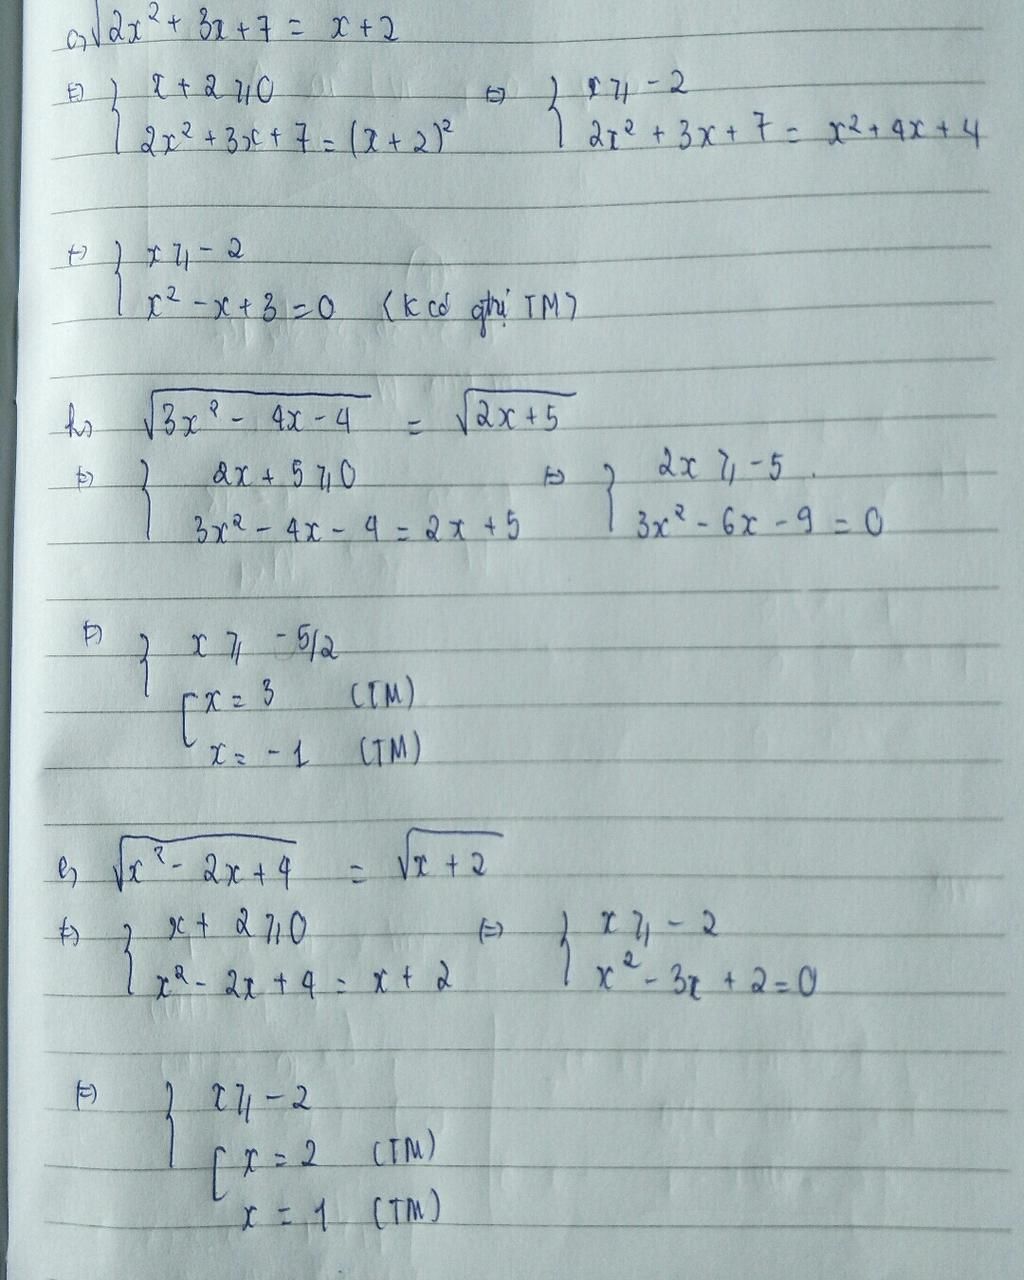 a, √2x² + 3x + 7 = x + 2
⇔ { x + 2 ≥ 0 ⇔ { x ≥ -2
2x² + 3x + 7 = (x + 2)² 2x² + 3x + 7 = x² + 4x + 4
⇔ { x ≥ -2
x² - x + 3 = 0 (K có ghị TM)
h, √3x² - 4x - 4 = √2x + 5
⇔ { 2x + 5 ≥ 0 ⇔ { 2x ≥ -5
3x² - 4x - 4 = 2x + 5 3x² - 6x - 9 = 0
⇔ { x ≥ -5/2
[ x = 3 (TM)
x = -1 (TM)
e, √x² - 2x + 4 = √x + 2
⇔ { x + 2 ≥ 0 ⇔ { x ≥ -2
x² - 2x + 4 = x + 2 x² - 3x + 2 = 0
⇔ { x ≥ -2
[ x = 2 (TM)
x = 1 (TM)